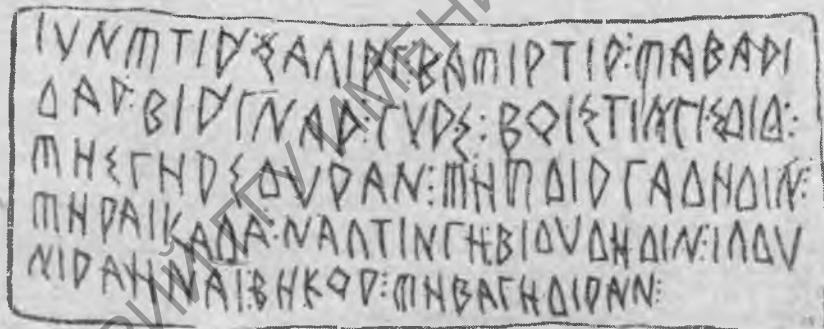 ΙΥΝΜΤΙΡ:ΣΑΛΙΡ:ΓΒΑΜΙΡΤΙΡ:ΜΑΒΑΡΙ
ΔΑΡ:ΒΙΡΓΝΑΡ:ΓΥΡΣ:ΒϘΙΣΤΙΝΓΙΣΔΙΔ:
ΜΗΣΓΗΡΣΔΥΡΑΝ:ΜΗΜΔΙΡΓΑΔΗΔΙΝ:
ΜΗΡΑΙΚΑΔΑ:ΝΑΛΤΙΝΓΗ:ΒΙΔΥΔΗΔΙΝ:ΙΛΔΥ
ΝΙΡΑΗΝΑΙ:ΒΗΚϘΡ:ΜΗΒΑΓΗΔΙΡΑΝ: